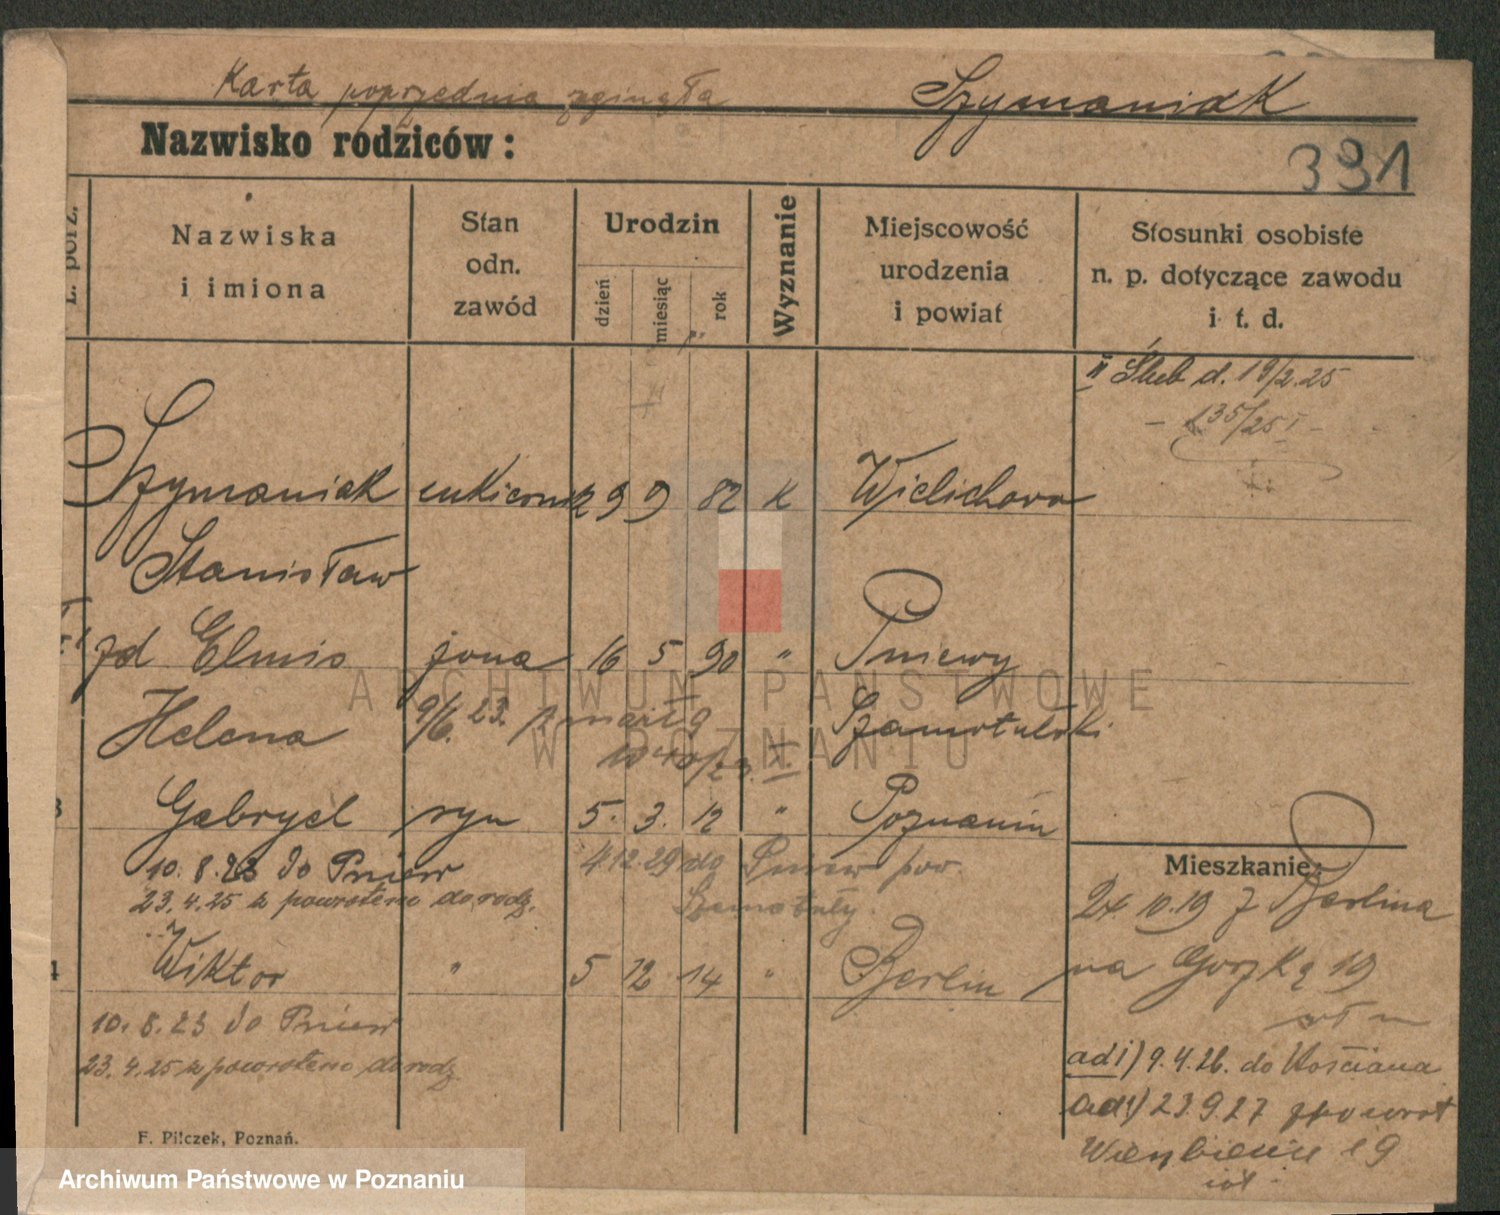 Karta poprzednia zginęła
Szymaniak
Nazwisko rodziców:
391
L. porz.
Nazwiska
i imiona
Stan
odn.
zawód
Urodzin
dzień
miesiąc
rok
Wyznanie
Miejscowość
urodzenia
i powiat
Stosunki osobiste
n. p. dotyczące zawodu
i t. d.
II Ślub d. 19/2.25
- 135/25 I -
Szymaniak cukiernik 9 9 82 k Wielichowo
Stanisław
zd Elmis żona 16 5 90 " Pniewy
Helena 9/6. 23. zmarła Szamotulski
Gabryel syn 5. 3. 12 " Poznaniu
10. 8. 23 do Pniew 4.12.29 do Pniew pow.
23. 4. 25 z powrotem do rodz. Szamotuły.
Mieszkanie:
24 10.19 z Berlina
Wiktor " 5 12 14 " Berlin
na Gorzką 19
10. 8. 23 do Pniew
23. 4. 25 z powrotem do rodz.
ad 1) 9. 4. 26. do Kościana
ad 1) 23.9.27 z powrot
19
F. Pilczek, Poznań.
ARCHIWUM PAŃSTWOWE
W POZNANIU
Archiwum Państwowe w Poznaniu